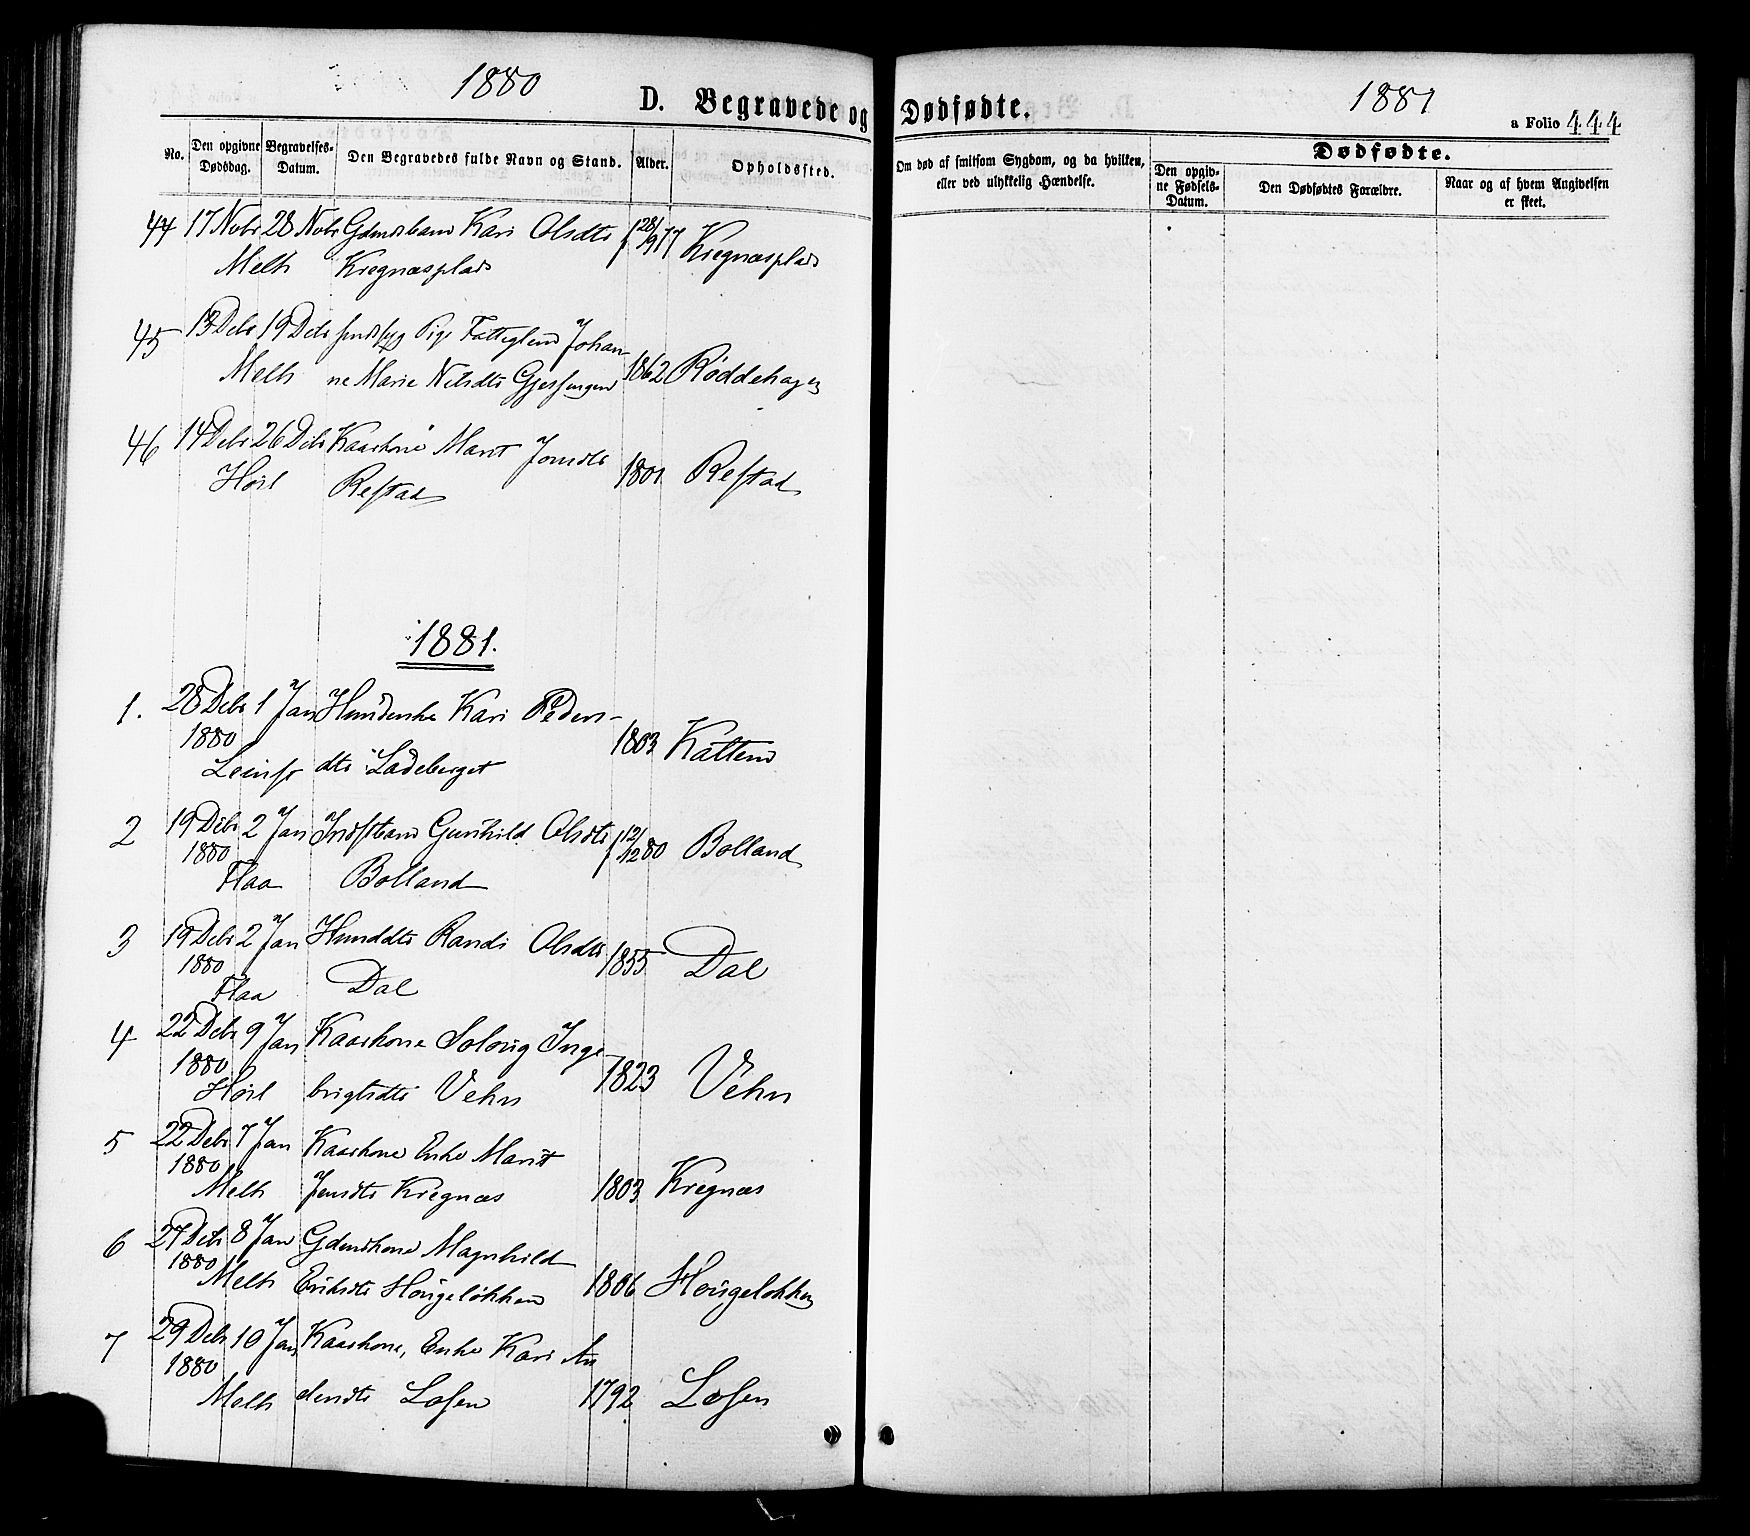 1880
D. Begravede og Dødfødte.
1881
a Folio 444
No.
Den opgivne Dødsdag.
Begravelses-Datum.
Den Begravedes fulde Navn og Stand.
Alder.
Opholdssted.
Om død af smitsom Sygdom, og da hvilken, eller ved ulykkelig Hændelse.
Dødfødte.
Den opgivne Fødsels-Datum.
Den Dødfødtes Forældre.
Naar og af hvem Angivelsen er skeet.
44 17 Nobr 28 Nobr Gdmdsbarn Kari Olsdtr f 28/9 77 Kregnæsplads
Melh Kregnæsplads
45 13 Debr 19 Debr Pige Johan-
Melh ne Marie Nilsdtr 1862 Røddehagen
46 14 Debr 26 Debr Kaarkone Marit Jonsdtr
Høil Refstad 1801 Refstad
1881.
1. 28 Debr 1 Jan Kari Peders-
1880 1803 Kattem
Leinst dtr Ladeberget
2 19 Debr 2 Jan Indstbarn Gunhild Olsdtr f 12/12 80 Bolland
1880
Flaa Bolland
3 19 Debr 2 Jan Randi Olsdtr 1855 Dal
1880
Flaa Dal
4 22 Debr 9 Jan Kaarkone Solvig Inge
1880 1823 Vehn
Høil brigtsdtr Vehn
5 22 Debr 7 Jan Kaarkone Enke Marit
1880
Melh Jensdtr Kregnæs 1803 Kregnæs
6 27 Debr 8 Jan Gdmdkone Magnhild
1880
Melh Eriksdtr Hougeløkken 1806 Hougeløkken
7 29 Debr 10 Jan Kaarkone, Enke Kari An
1880
Melh dersdtr Løfsen 1792 Løfsen